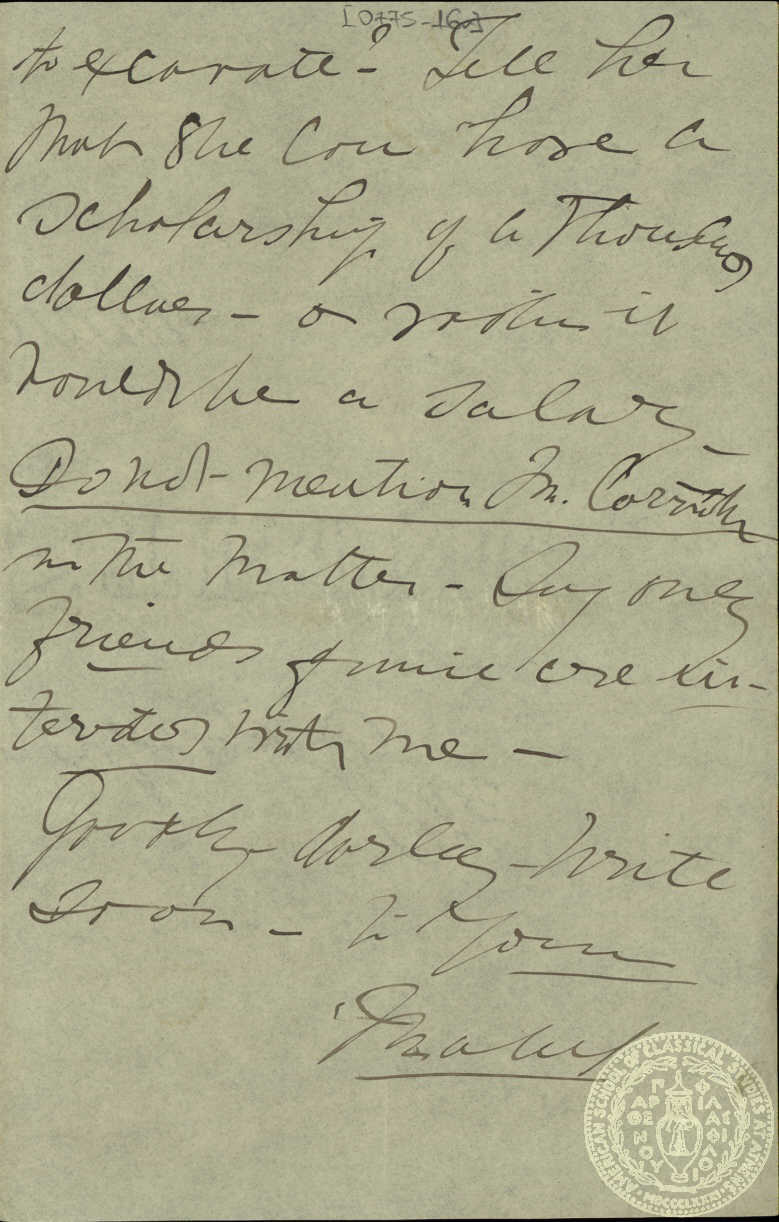 [0775-16]
to excavate? Tell her
that she can have a
scholarship of a thousand
dollars - or rather it
would be a salary -
Do not mention Mr. 
in the matter - Say only
friends of mine are in-
terested with me -
Goodby darling - Write
soon - to Your
Mabel
AMERICAN SCHOOL OF CLASSICAL STUDIES AT ATHENS
ΠΑΡΘΕΝΟΥ ΦΙΛΑΣ ΦΙΛΟΙ
MDCCCLXXXI